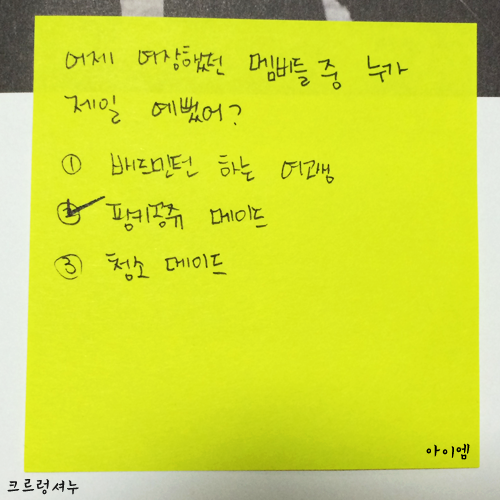 어제 여장했던 멤버들 중 누가
제일 예뻤어?
① 배드민턴 하는 여고생
② 핑키공쥬 메이드
③ 청소 메이드
아이엠
크르렁셔누